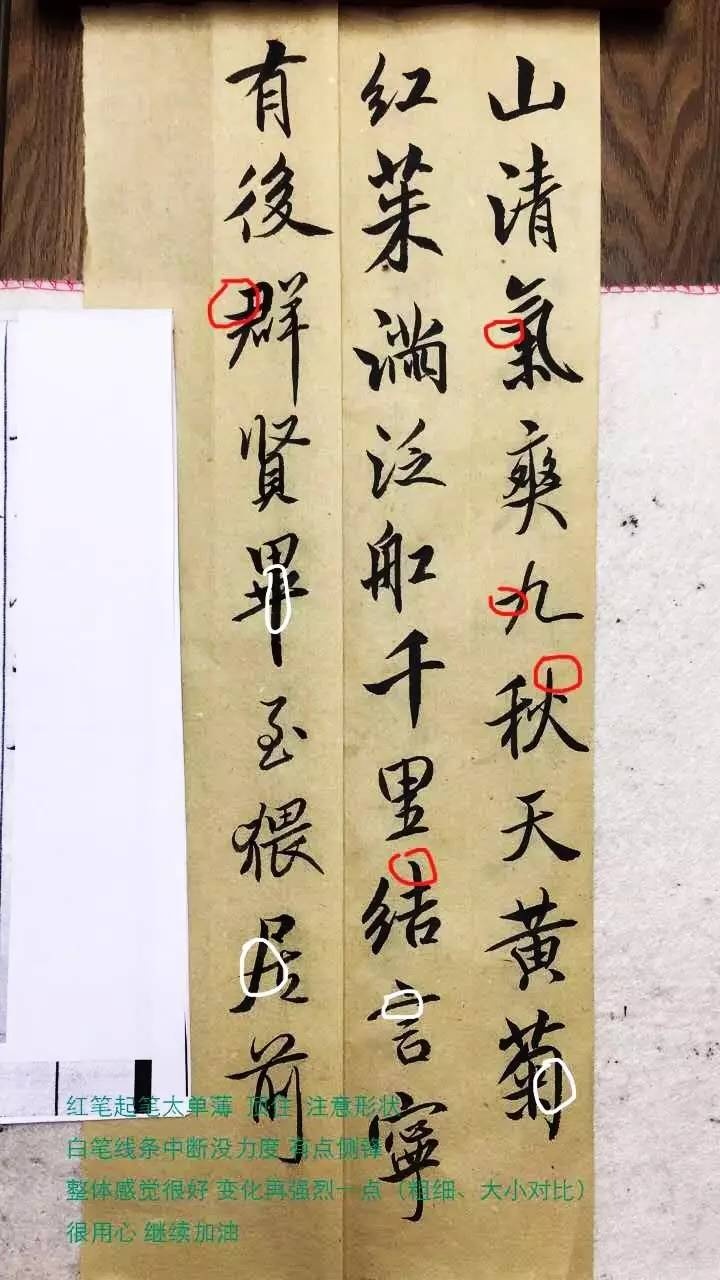 山清氣爽九秋天黃菊
紅茱滿泛舡千里結言寧
有後群賢畢至猥居前
红笔起笔太单薄 顶住 注意形状
白笔线条中断没力度 有点侧锋
整体感觉很好 变化再强烈一点（粗细、大小对比）
很用心 继续加油